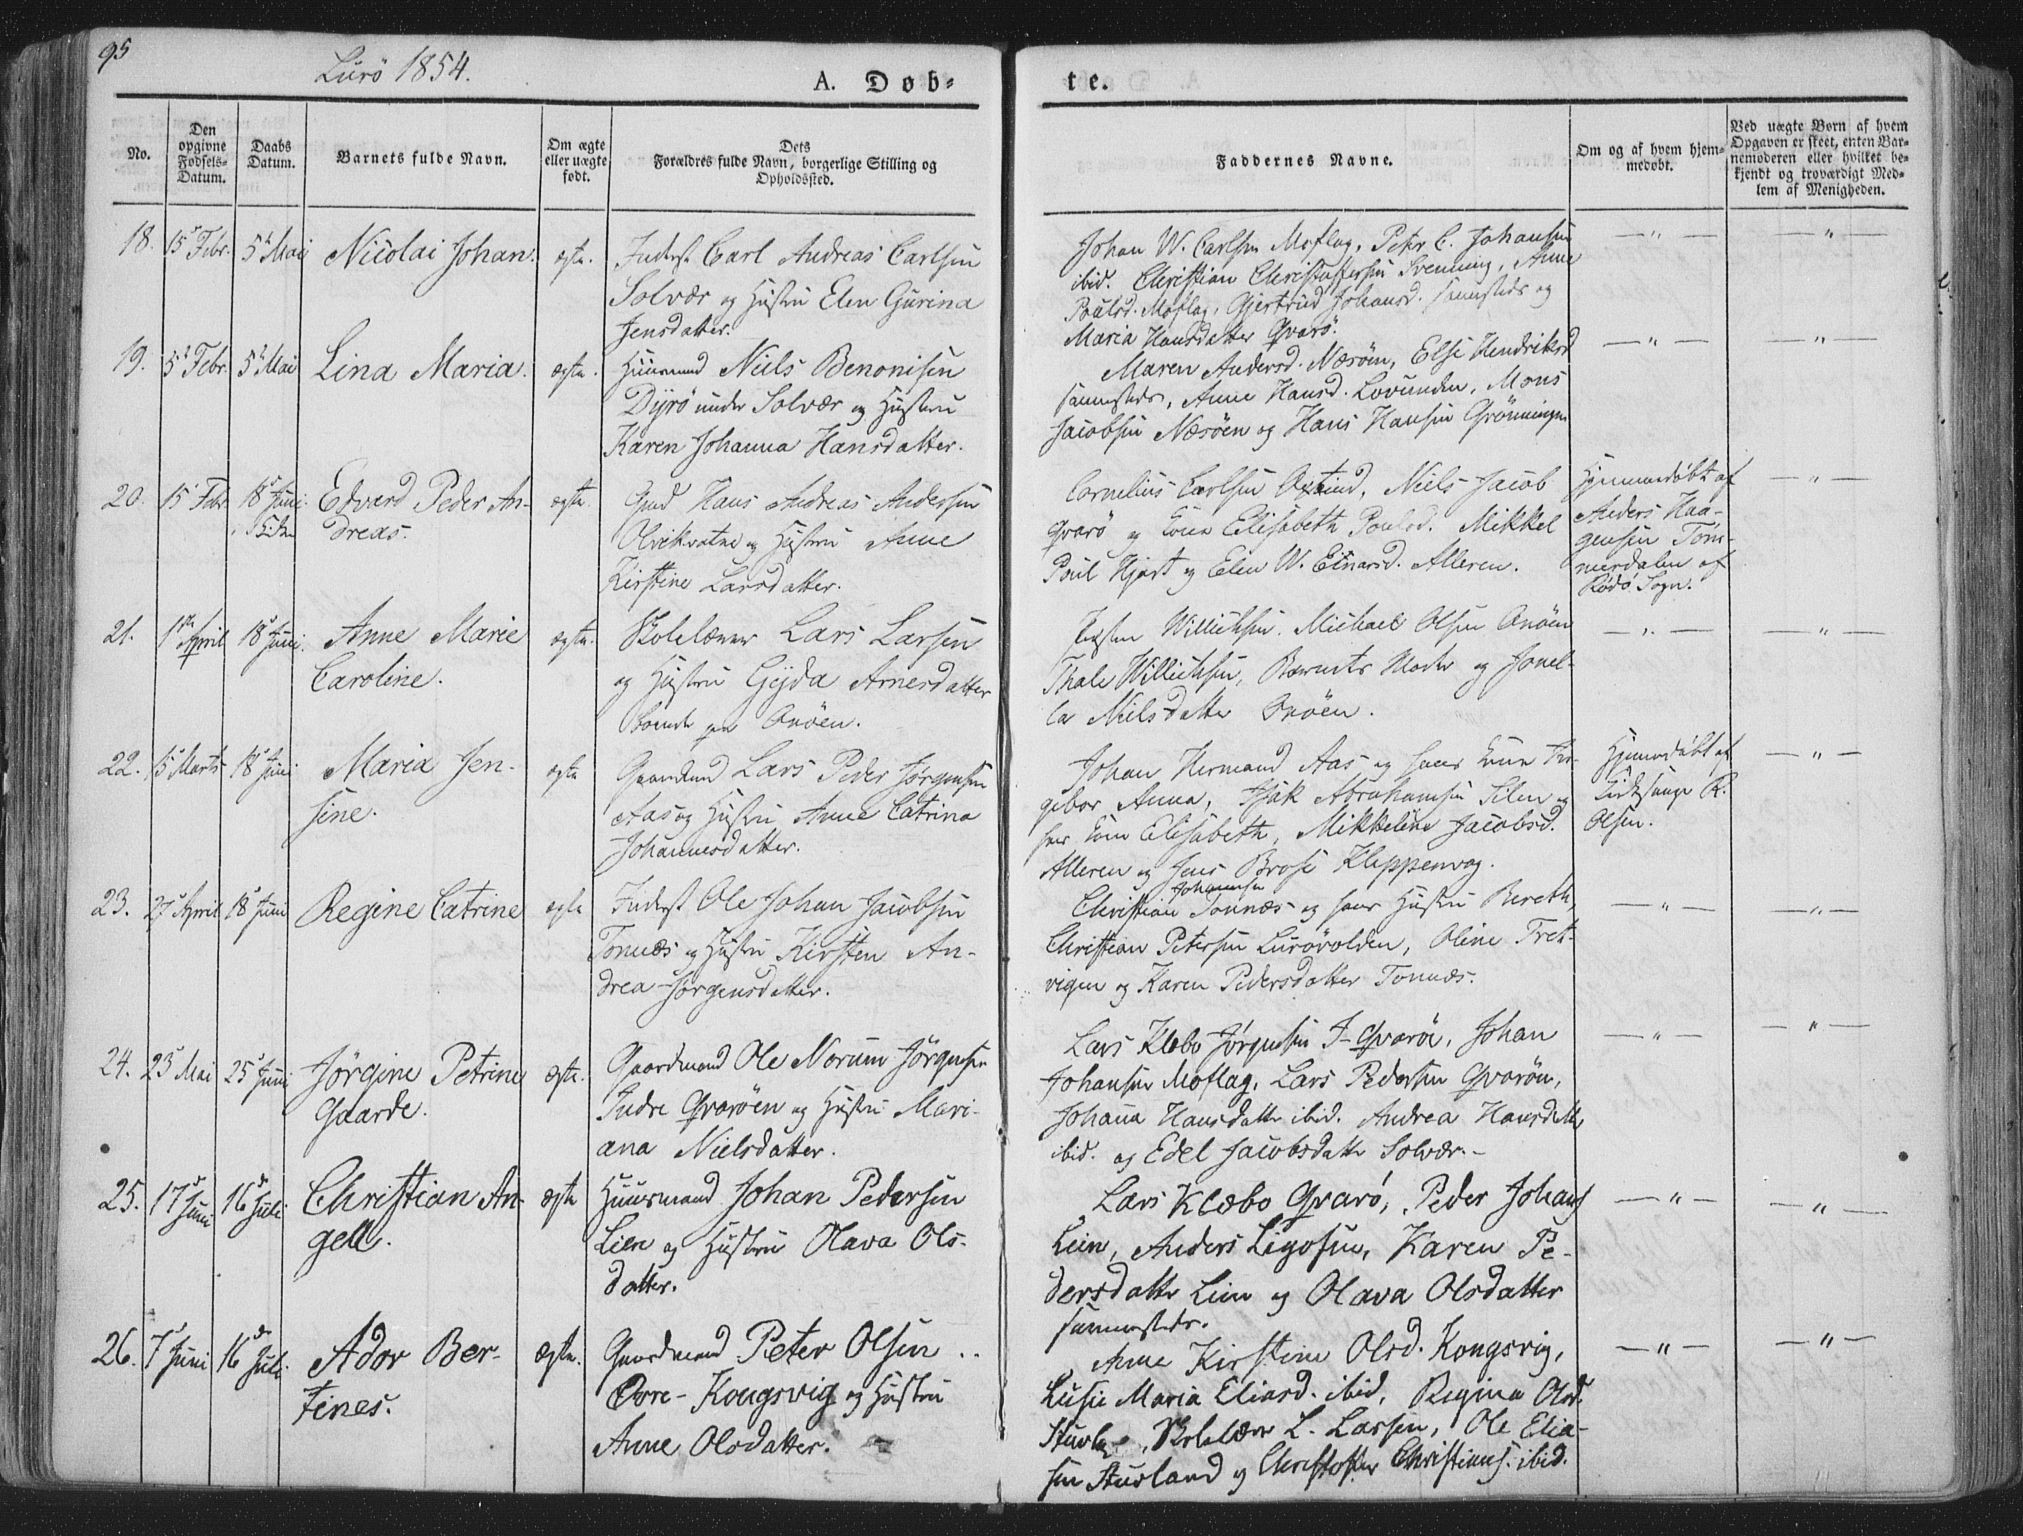 95
Lurö 1854.
A. Døb-
te.
No.
Den opgivne Fødsels-Datum.
Daabs Datum.
Barnets fulde Navn.
Om ægte eller uægte født.
Dets Forældres fulde Navn, borgerlige Stilling og Opholdssted.
Faddernes Navne.
Om og af hvem hjem-medøbt.
Ved uægte Børn af hvem Opgaven er skeet, enten Bar-nemoderen eller hvilket be-kjendt og troværdigt Med-lem af Menigheden.
18. 15 Febr. 5 Mai Nicolai Johan. ægte.
Inderst Carl Andreas Carlsen
Solvær og Hustru Elen Gurina
Jensdatter.
Johan W. Carlsen Moflag, Peter C. Johansen
ibid. Christian Christoffersen Svenning, Anne
Poulsd. Moflag, Gjertrud Johansd. sammesteds og
Maria Hansdatter Qvarö.
— " — — " —
19. 5 Febr. 5 Mai Lina Maria. ægte.
Huusmand Niels Benonisen
Dyrö under Solvær og Hustru
Karen Johanna Hansdatter.
Maren Andersd. Næsöen, Else Hendriksd
sammesteds, Anne Hansd. Lovunden, Mons
Jacobsen Næsöen og Hans Hansen Grönningen
— " — — " —
20. 15 Febr 18 Juni Edvard Peder An-
dreas. ægte.
Gmd Hans Andreas Andersen
Olvikvatne og Hustru Anne
Kirstine Larsdatter.
Cornelius Carlsen, Niels Jacob
Qvarö og Kone Elisabeth Poulsd. Mikkel
Poul Hjart og Elen W. Einarsd. Alleren.
Hjemmedøbt af
Anders Haa-
gensen Töm-
merdalen af
Rödö Sogn.
— " —
21. 1 April 18 Juni. Anne Marie
Caroline. ægte.
Skolelærer Lars Larsen
og Hustru Gjda Arnesdatter
boende paa Onöen.
Willichsen. Michael Olsen Onöen
Thale Willichsen, Barnets Moder og Jonel-
la Nielsdatter Onöen.
— " — — " —
22. 15 Marts 18 Juni Maria Jen-
sine. ægte
Gaardmd Lars Peder Jörgensen
Aas og Hustru Anne Catrina
Johannesdatter.
Johan Hermand Aas og hans Kone In-
gebor Anna, Isak Abrahamsen Silen og
hans Kone Elisabeth, Mikkeline Jacobsd.
Alleren og Jens Brose Kleppenvag.
Hjemmedøbt af
Kirkesanger R.
Olsen.
— " —
23. 27 April 18 Juni Regine Catrine ægte
Inderst Ole Johan Jacobsen
Tonnæs og Hustru Kirsten An-
drea Jörgensdatter.
Johannsen
Christian Tonnæs og hans Hustru Bereth,
Christian Petersen Lurövolden, Oline Tret-
vigen og Karen Pedersdatter Tonnæs.
— " — — " —
24. 23 Mai 25 Juni Jörgine Petrine
Gaarde. ægte.
Gaardmand Ole Norum Jörgensen
Indre Qvaröen og Hustru Mari-
ana Nielsdatter.
Lars Klæbo Jörgensen I-Qvaröe, Johan
Johansen Moflag, Lars Pedersen Qvaröen,
Johana Hansdatter ibid. Andrea Hansdatter
ibid. og Edel Jacobsdatter Solvær.-
— " — — " —
25. 17 Juni 16 Juli Christian An-
gell. ægte
Huusmand Johan Pedersen
Lien og Hustru Olava Ols-
datter.
Lars Klæbo Qvarö, Peder Johans
Lein, Anders Ligosen, Karen Pe-
dersdatter Lein og Olava Olsdatter
sammesteds.
— " — — " —
26. 7 Juni 16 Juli. Ador Ber-
tines. ægte.
Gaardmand Peter Olsen
Övre-Kongsvig og Hustru
Anne Olsdatter.
Anne Kirstine Olsd. Kongsvig,
Lusie Maria Eliasd. ibid, Regina Olsd.
Skolelærer L. Larsen, Ole Elia-
sen Stuvland og Christoffer Christians. ibid.
— " — — " —